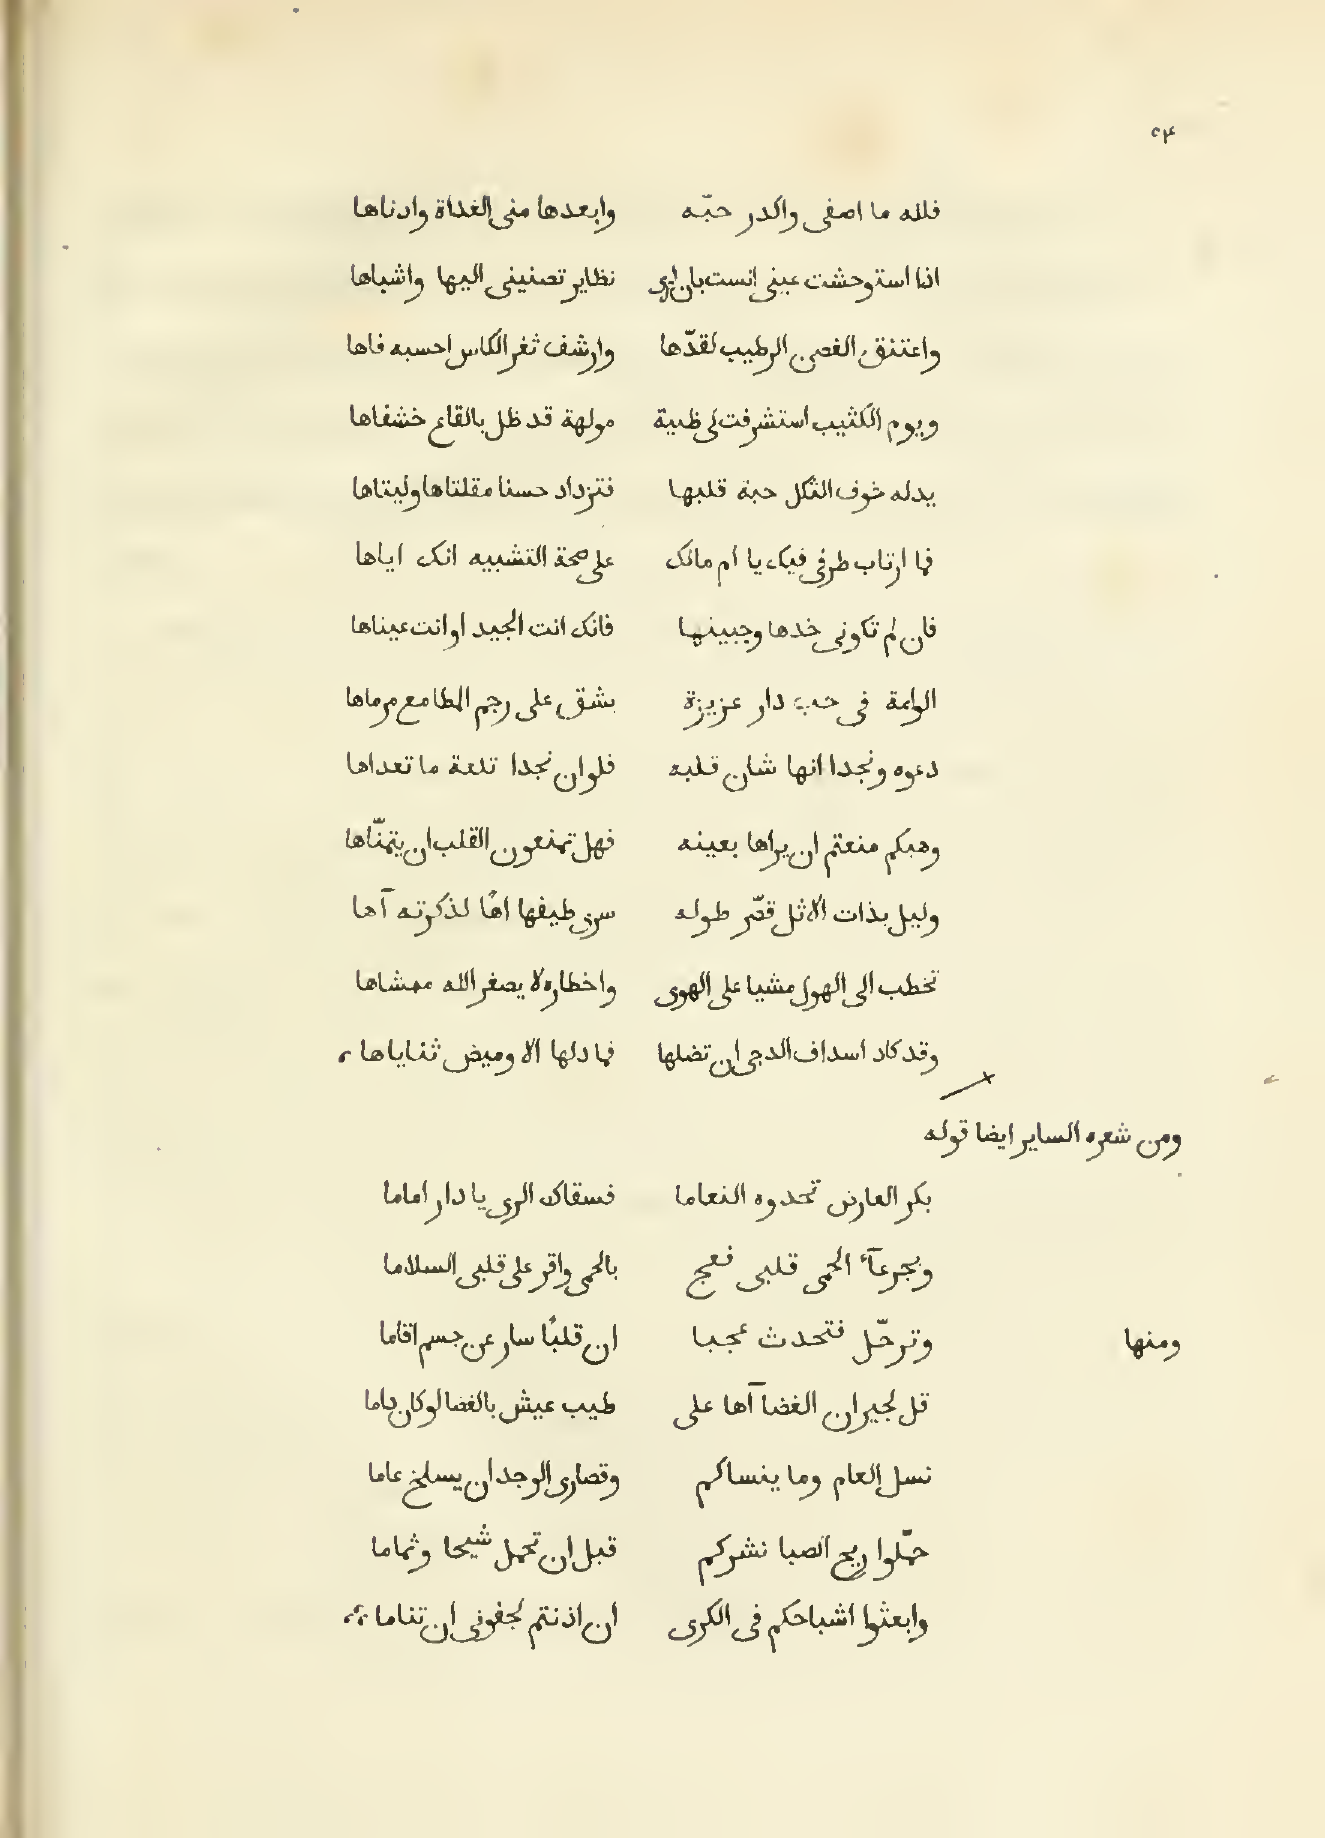 ٥٤
فلله ما اصفى واكدر حبّه وابعدها منى الغداة وادناها
اذا استوحشت عينى انست بان ارى نظاير تصنينى اليها واشباها
واعتنق الغصن الرطيب لقدّها وارشف ثغر الكاس احسبه فاها
ويوم الكثيب استشرفت لى ظبية مولهة قد ظل بالقاع خشفاها
يدله خوف الثكل حبة قلبها فتزداد حسنا مقلتاها وليتاها
فما ارتاب طرفى فيك يا ام مالك على صحة التشبيه انك اياها
فان لم تكونى خدها وجبينها فانك انت الجيد او انت عيناها
الوامة فى حب دار عزيزة يشق على رجم المطامع مرماها
دعوه ونجدا انها شان قلبه فلو ان نجدا تلعة ما تعداها
وهبكم منعتم ان يراها بعينه فهل تمنعون القلب ان يتمنّاها
وليل بذات الاثل قصّر طوله سرى طيفها اهًا لذكرته آها
تخطب الى الهول مشيا على الهوى واخطاره لا يصغر الله ممشاها
وقد كاد اسداف الدجى ان تضلها فما دلها الا وميض ثناياها
ومن شعره الساير ايضا قوله
بكر العارض تحدوه النعاما فسقاك الرى يا دار اماما
وبجرعآء الحمى قلبى فعج بالحمى واقر على قلبى السلاما
ومنها وترحّل فتحدث عجبا ان قلبًا سار عن جسم اقاما
قل لجيران الغضا آها على طيب عيش بالغضا لو كان داما
نسل العام وما ينساكم وقصارى الوجد ان يسلخ عاما
حمّلوا ريح الصبا نشركم قبل ان تحمل شيحا وثماما
وابعثوا اشباحكم فى الكرى ان اذنتم لجفونى ان تناما